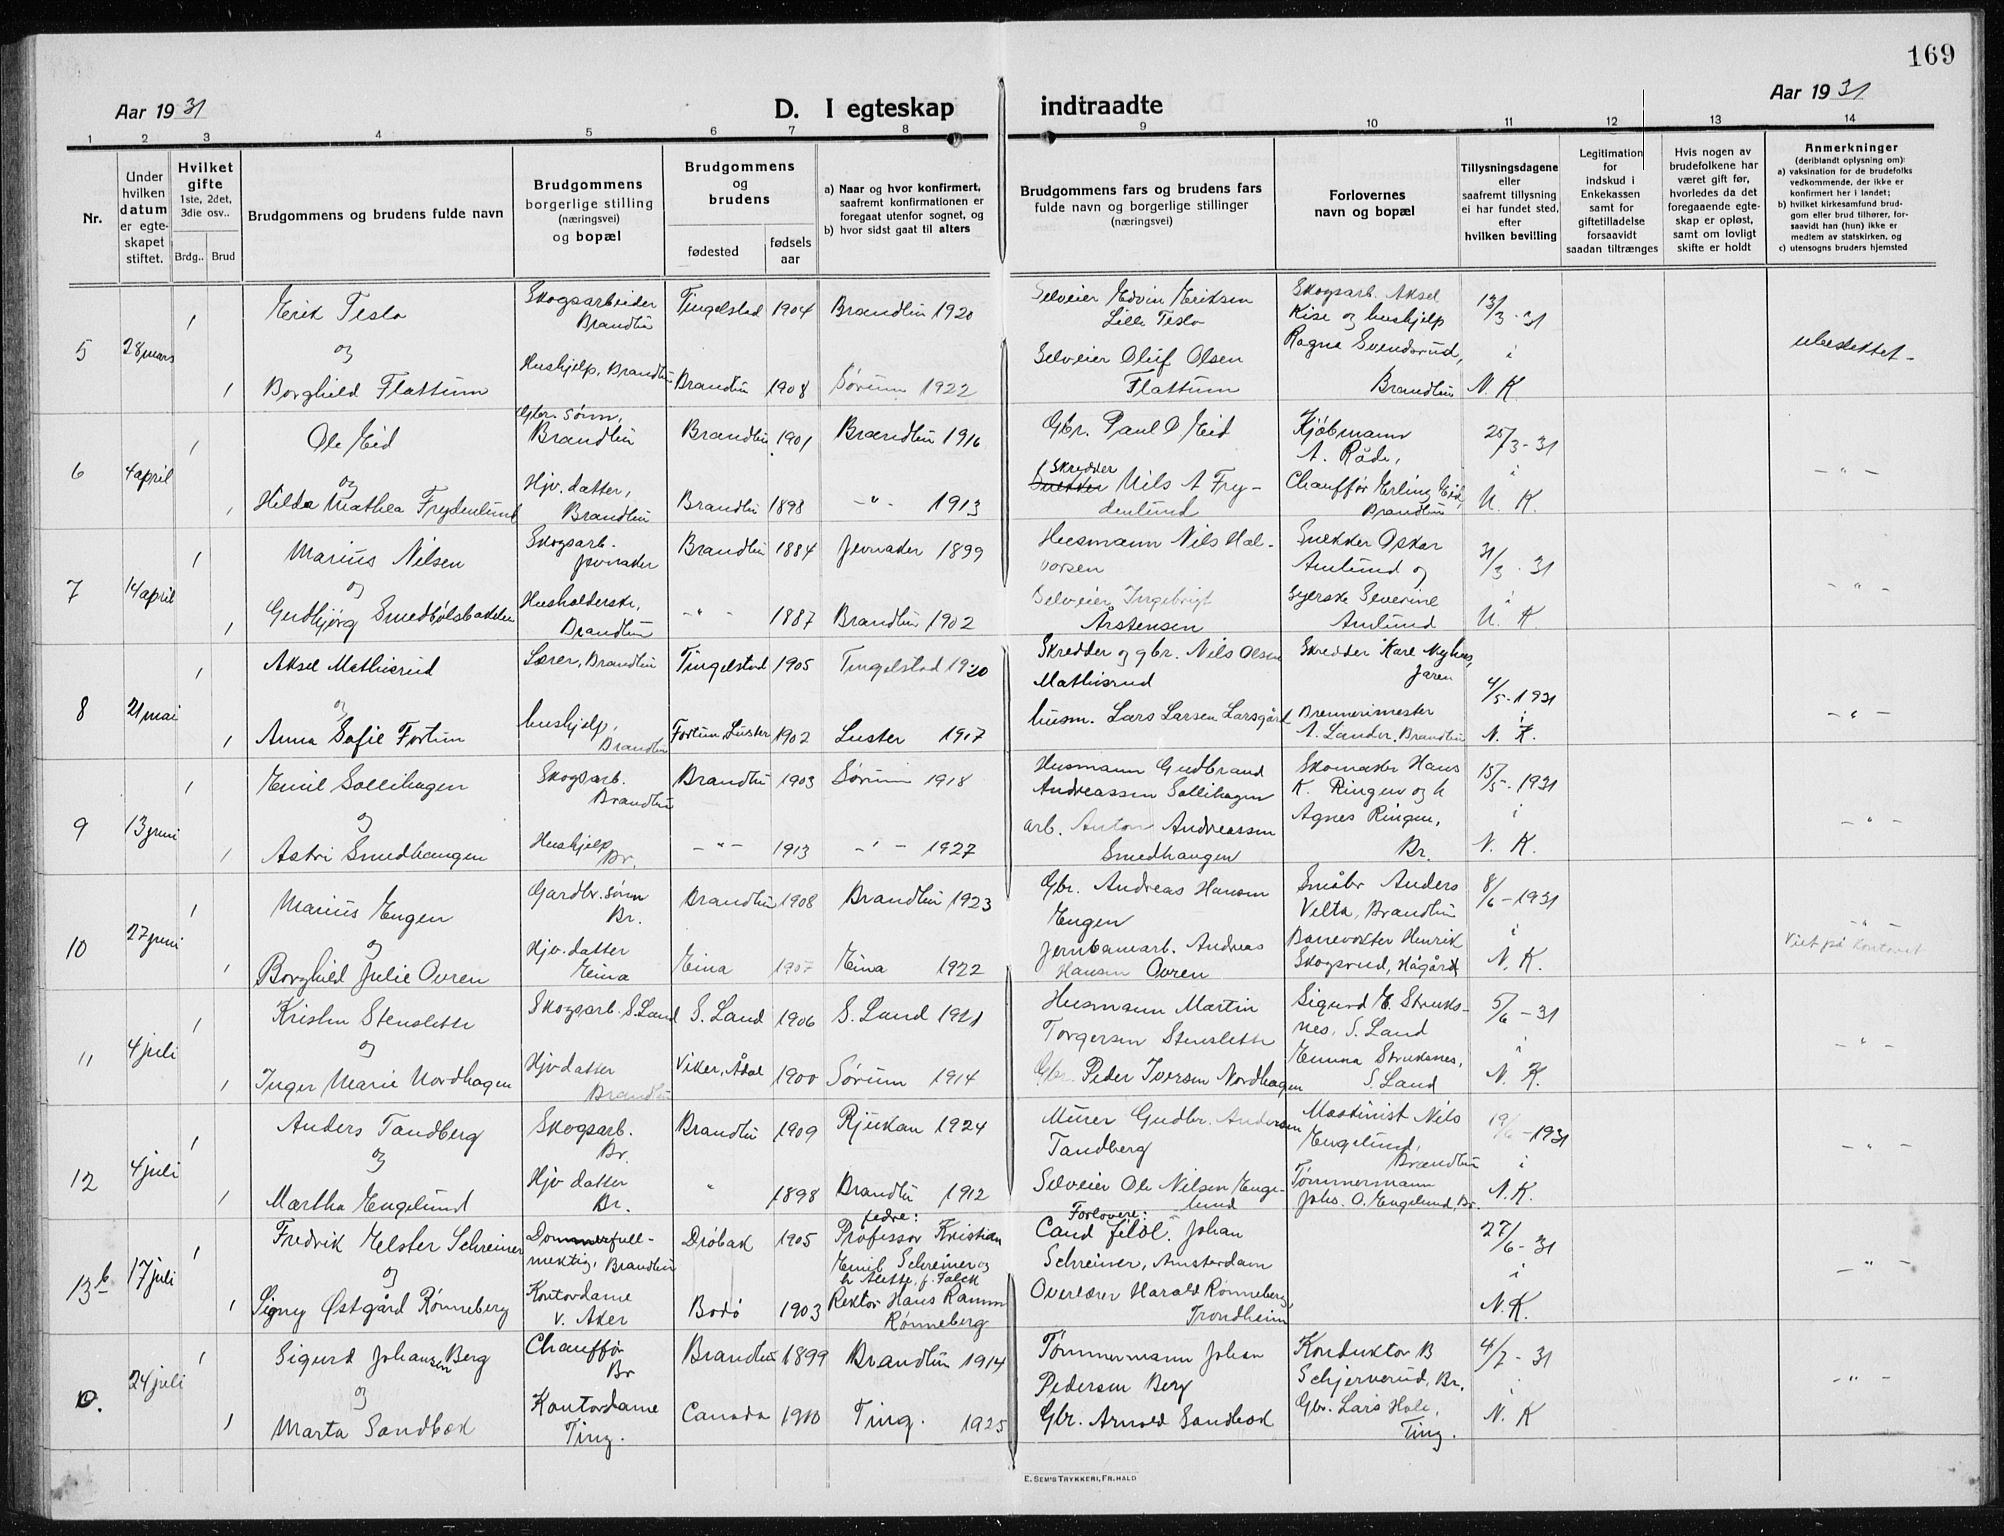 169
Aar 1931
D. I egteskap indtraadte
Aar 1931
1 2 3 4 5 6 7 8 9 10 11 12 13 14
Nr.
Under hvilken datum er egteskapet stiftet.
Hvilket gifte 1ste, 2det, 3die osv..
Brdg.. Brud
Brudgommens og brudens fulde navn
Brudgommens borgerlige stilling (næringsvei) og bopæl
Brudgommens og brudens
fødested
fødsels aar
a) Naar og hvor konfirmert, saafremt konfirmationen er foregaat utenfor sognet, og
b) hvor sidst gaat til alters
Brudgommens fars og brudens fars fulde navn og borgerlige stillinger (næringsvei)
Forlovernes navn og bopæl
Tillysningsdagene eller saafremt tillysning ei har fundet sted, efter hvilken bevilling
Legitimation for indskud i Enkekassen samt for giftetilladelse forsaavidt saadan tiltrænges
Hvis nogen av brudefolkene har været gift før, hvorledes da det foregaaende egteskap er opløst, samt om lovligt skifte er holdt
Anmerkninger (deriblandt oplysning om):
a) vaksination for de brudefolks vedkommende, der ikke er konfirmert her i landet;
b) hvilket kirkesamfund brudgom eller brud tilhører, forsaavidt han (hun) ikke er medlem av statskirken, og
c) utensogns bruders hjemsted
5 28 mars
1 Erik Teslo Skogsarbeider Brandbu Tingelstad 1904 Brandbu 1920 Selveier Edvin Eriksen Lille Teslo Skogsarb. Aksel Kise og hushjelp 13/3-31
og
1 Borghild Flattum Hushjelp, Brandbu Brandbu 1908 Sørum 1922 Selveier Oluf Olsen Flattum Ragna Svendsrud, Brandbu i N. K. ubeslektet
6 4 april
1 Ole Eid Gbr. sønn, Brandbu Brandbu 1901 Brandbu 1916 Gbr. Paul O Eid Kjøbmann A. Råde, 25/3-31
og
1 Hilda Mathea Frydenlund Hjv. datter, Brandbu Brandbu 1898 -"- 1913 Skredder Nils A Frydenlund Chauffør Erling Eid, Brandbu i N. K. -"-
7 14 april
1 Marius Nilsen Skogsarb. Jevnaker Brandbu 1884 Jevnaker 1899 Husmann Nils Halvorsen Snekker Oskar Amlund og 31/3-31
og
1 Gudbjørg Smedbølsbakken Husholderske, Brandbu -"- 1887 Brandbu 1902 Selveier Ingebrigt Arstensen Syerske Severine Amlund i N. K. -"-
8 21 mai
1 Aksel Mathisrud Lærer, Brandbu Tingelstad 1905 Tingelstad 1920 Skredder og gbr. Nils Olsen Mathisrud Skredder Karl Myhre, Jaren 4/5-1931
og
1 Anna Sofie Fortun hushjelp, Brandbu Fortun, Luster 1902 Luster 1917 husm. Lars Larsen Larsgård Brennerimester A. Lander, Brandbu i N. K. -"-
9 13 juni
1 Emil Sollihagen Skogsarb. Brandbu Brandbu 1903 Sørum 1918 Husmann Gudbrand Andreassen Sollihagen Skomaker Hans K. Ringen og h 15/5-1931
og
1 Astri Smedhaugen Hushjelp Br. -"- 1913 -"- 1927 arb. Anton Andreassen Smedhaugen Agnes Ringen, Br. i N. K. -"-
10 27 juni
1 Marius Engen Gardbr. sønn Br. Brandbu 1908 Brandbu 1923 Gbr. Andreas Hansen Engen Småbr Anders Velta, Brandbu 8/6-1931
og
1 Borghild Julie Ovren Hjv. datter Eina Eina 1907 Eina 1922 Jernbanearb. Andreas Hansen Ovren Banevokter Henrik Skogsrud, Hågård i N. K. -"- Viet på kontoret
11 4 juli
1 Kristen Stenslette Skogsarb. S. Land S. Land 1906 S. Land 1921 Husmann Martin Torgersen Stenslette Sigurd E. Struksnes, S. Land 5/6-31
og
1 Inger Marie Nordhagen Hjv datter Brandbu Viker, Ådal 1900 Sørum 1914 Gbr. Peder Iversen Nordhagen Emma Struksnes, S. Land i N. K. -"-
12 4 juli
1 Anders Tandberg Skogsarb. Br. Brandbu 1909 Rjukan 1924 Murer Gudbr. Andersen Tandberg Maskinist Nils Engelund, Brandbu 19/6-1931
og
1 Martha Engelund Hjv datter Br. " 1898 Brandbu 1912 Selveier Ole Nilsen Engelund Tømmermann Johs. O. Engelund, Br. i N. K. -"-
13 b 17 juli
1 Fredrik Elster Schreiner Dommerfullmektig, Brandbu Drøbak 1905 fedre: Professor Kristian Emil Schreiner og h Alette, f. Falck Forlovere: Cand filol. Johan Schreiner, Amsterdam 27/6-31
og
1 Signy Østgård Rønneberg Kontordame V. Aker Bodø 1903 Rektor Hans Ramm Rønneberg Overlærer Harald Rønneberg, Trondheim i N. K. -"-
24 juli
1 Sigurd Johansen Berg Chauffør Br Brandbu 1899 Brandbu 1914 Tømmermann Johan Pedersen Berg Konduktør B Schjerverud, Br. 4/7-31
og
1 Marta Sandbæk Kontordame Ting. Canada 1910 Ting. 1925 Gbr. Arnold Sandbæk Gbr. Lars Hole, Ting. i N. K -"-
E. SEM'S TRYKKERI, FR.HALD